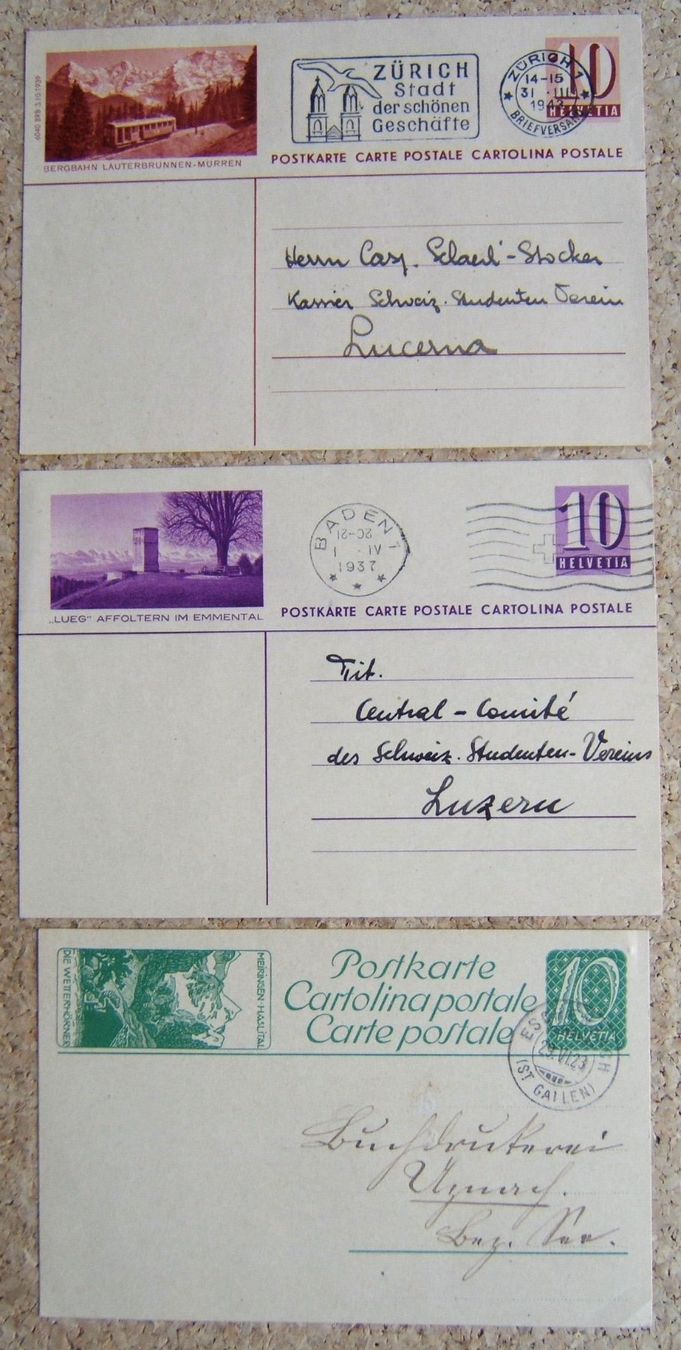 6040 BRB 3.10.1939
BERGBAHN LAUTERBRUNNEN-MÜRREN
ZÜRICH
Stadt
der schönen
Geschäfte
ZÜRICH 1
14-15
31 III
BRIEFVERSAND
10
HELVETIA
POSTKARTE CARTE POSTALE CARTOLINA POSTALE
Herrn Casp. -Stocker
Kassier Schweiz. Studenten Verein
Lucerna
„LUEG" AFFOLTERN IM EMMENTAL
BADEN 1
20-21
1 VI
1937
10
HELVETIA
POSTKARTE CARTE POSTALE CARTOLINA POSTALE
Tit.
Central-Comité
des Schweiz. Studenten-Vereins
Luzern
DIE WETTERHÖRNER
MEIRINGEN-HASLITAL
Postkarte
Cartolina postale
Carte postale
10
HELVETIA
29.VI.23
(ST GALLEN)
Buchdrukerei
Uznach.
Bez. See.